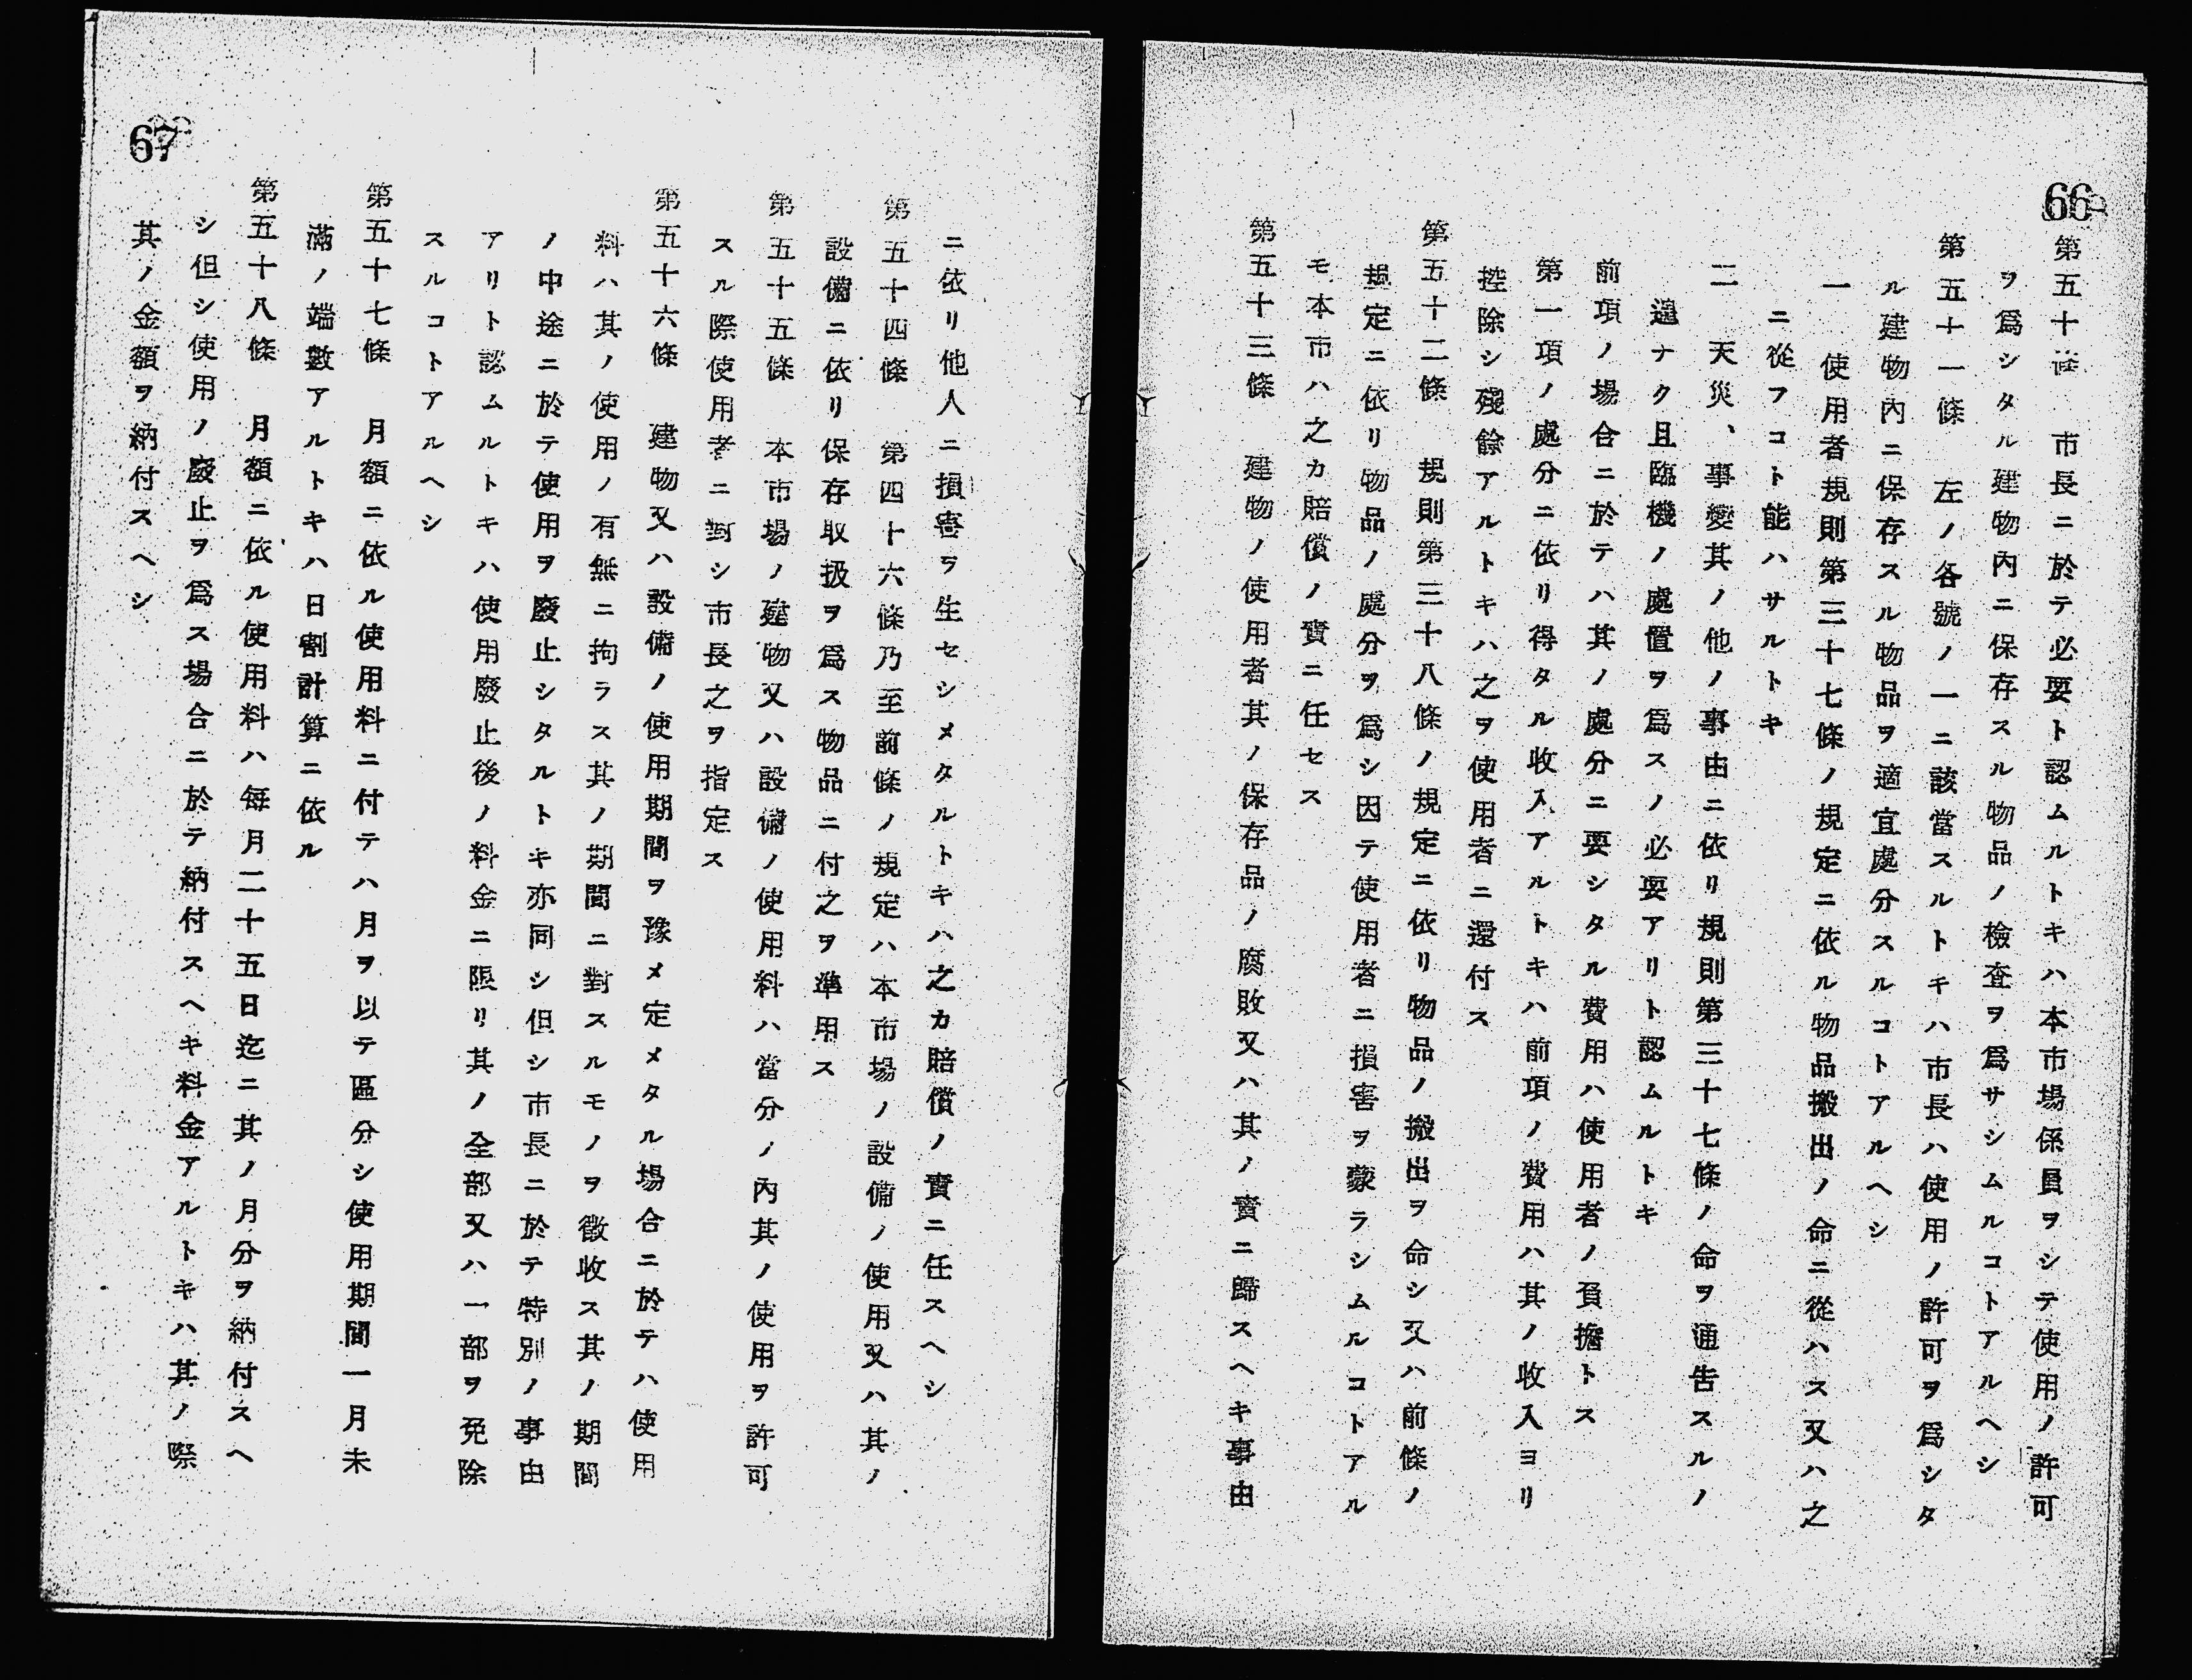 66
第五十條　市長ニ於テ必要ト認ムルトキハ本市場係員ヲシテ使用ノ許可
ヲ爲シタル建物內ニ保存スル物品ノ檢査ヲ爲サシムルコトアルヘシ
第五十一條　左ノ各號ノ一ニ該當スルトキハ市長ハ使用ノ許可ヲ爲シタ
ル建物內ニ保存スル物品ヲ適宜處分スルコトアルヘシ
一　使用者規則第三十七條ノ規定ニ依ル物品搬出ノ命ニ從ハス又ハ之
ニ從フコト能ハサルトキ
二　天災、事變其ノ他ノ事由ニ依リ規則第三十七條ノ命ヲ通告スルノ
遑ナク且臨機ノ處置ヲ爲スノ必要アリト認ムルトキ
前項ノ場合ニ於テハ其ノ處分ニ要シタル費用ハ使用者ノ負擔トス
第一項ノ處分ニ依リ得タル收入アルトキハ前項ノ費用ハ其ノ收入ヨリ
控除シ殘餘アルトキハ之ヲ使用者ニ還付ス
第五十二條　規則第三十八條ノ規定ニ依リ物品ノ搬出ヲ命シ又ハ前條ノ
規定ニ依リ物品ノ處分ヲ爲シ因テ使用者ニ損害ヲ蒙ラシムルコトアル
モ本市ハ之カ賠償ノ責ニ任セス
第五十三條　建物ノ使用者其ノ保存品ノ腐敗又ハ其ノ責ニ歸スヘキ事由
67
ニ依リ他人ニ損害ヲ生セシメタルトキハ之カ賠償ノ責ニ任スヘシ
第五十四條　第四十六條乃至前條ノ規定ハ本市場ノ設備ノ使用又ハ其ノ
設備ニ依リ保存取扱ヲ爲ス物品ニ付之ヲ準用ス
第五十五條　本市場ノ建物又ハ設備ノ使用料ハ當分ノ內其ノ使用ヲ許可
スル際使用者ニ對シ市長之ヲ指定ス
第五十六條　建物又ハ設備ノ使用期間ヲ豫メ定メタル場合ニ於テハ使用
料ハ其ノ使用ノ有無ニ拘ラス其ノ期間ニ對スルモノヲ徵收ス其ノ期間
ノ中途ニ於テ使用ヲ廢止シタルトキ亦同シ但シ市長ニ於テ特別ノ事由
アリト認ムルトキハ使用廢止後ノ料金ニ限リ其ノ全部又ハ一部ヲ免除
スルコトアルヘシ
第五十七條　月額ニ依ル使用料ニ付テハ月ヲ以テ區分シ使用期間一月未
滿ノ端數アルトキハ日割計算ニ依ル
第五十八條　月額ニ依ル使用料ハ每月二十五日迄ニ其ノ月分ヲ納付スヘ
シ但シ使用ノ廢止ヲ爲ス場合ニ於テ納付スヘキ料金アルトキハ其ノ際
其ノ金額ヲ納付スヘシ